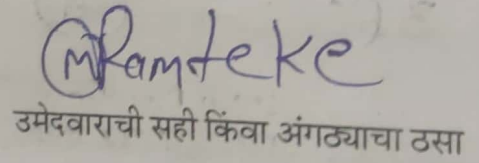 MRamteke
उमेदवाराची सही किंवा अंगठ्याचा ठसा